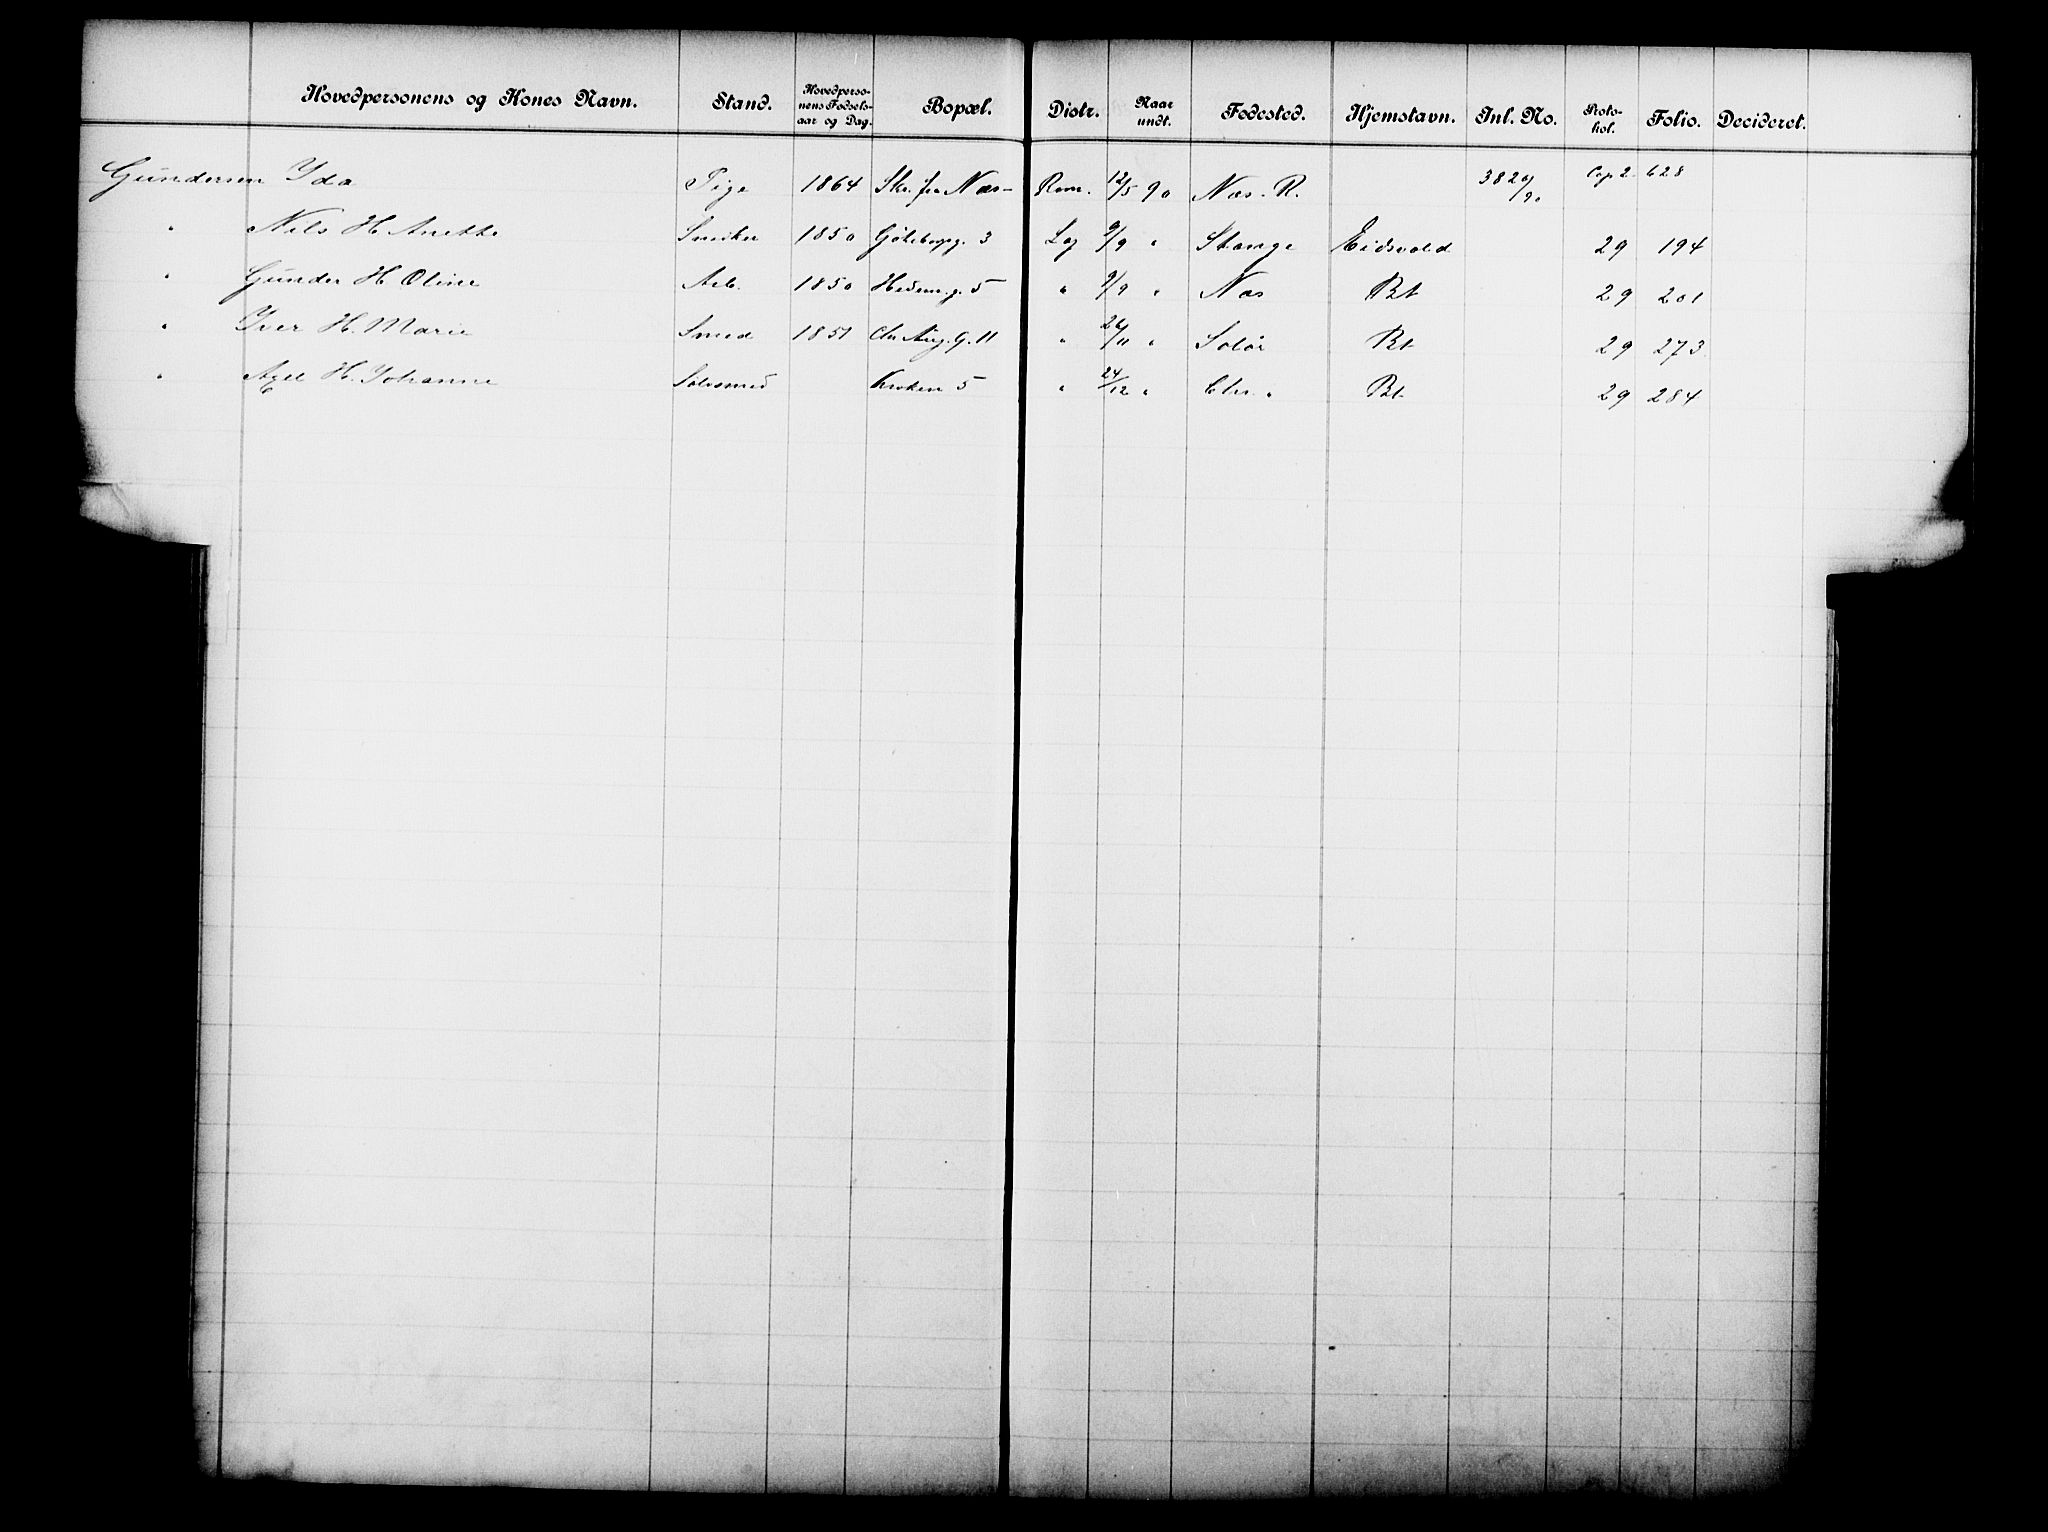 Hovedpersonens og Kones Navn. Stand. Hovedperso-nens Fødsels-aar og Dag. Bopæl. Distr. Naar undt. Fødested. Hjemstavn. Inl. No. Proto-kol. Folio. Decideret.
Gundersen Yda Pige 1864 Skr. fra Næs- Rom. 12/5 90 Næs. R. 382 6/90 Cop 2 628
" Nils H. Anette Snedker 1850 Göteborgg. 3 Lag 9/9 " Stange Eidsvold 29 194
" Gunder H Oline Arb. 1850 Hedem.g. 5 " 9/9 " Næs Bt 29 201
" Iver H. Marie Smed 1851 Chr Aug. G. 11 " 26/11 " Solør Bt 29 273
" Axel H. Johanne Sølvsmed Kroken 5 " 24/12 " Chr. " Bt 29 284